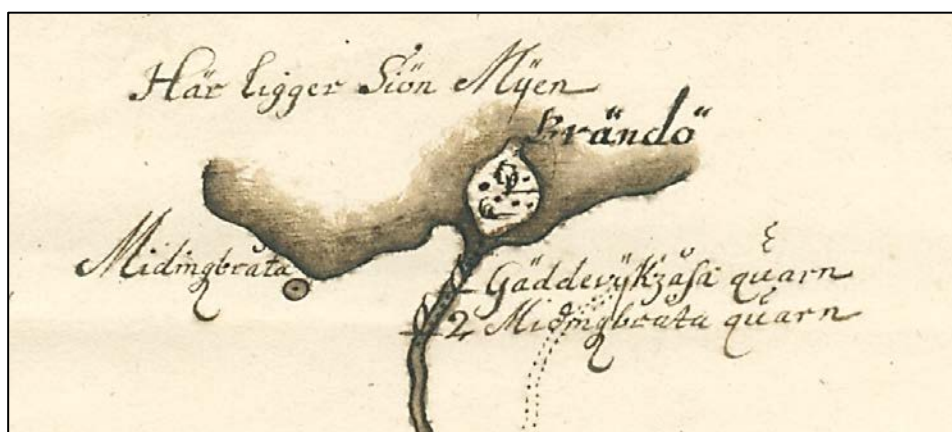 Här ligger Siön Myen
Brändö
Midingbråta
Gäddevÿkzåsa quarn
2 Midingbråta quarn